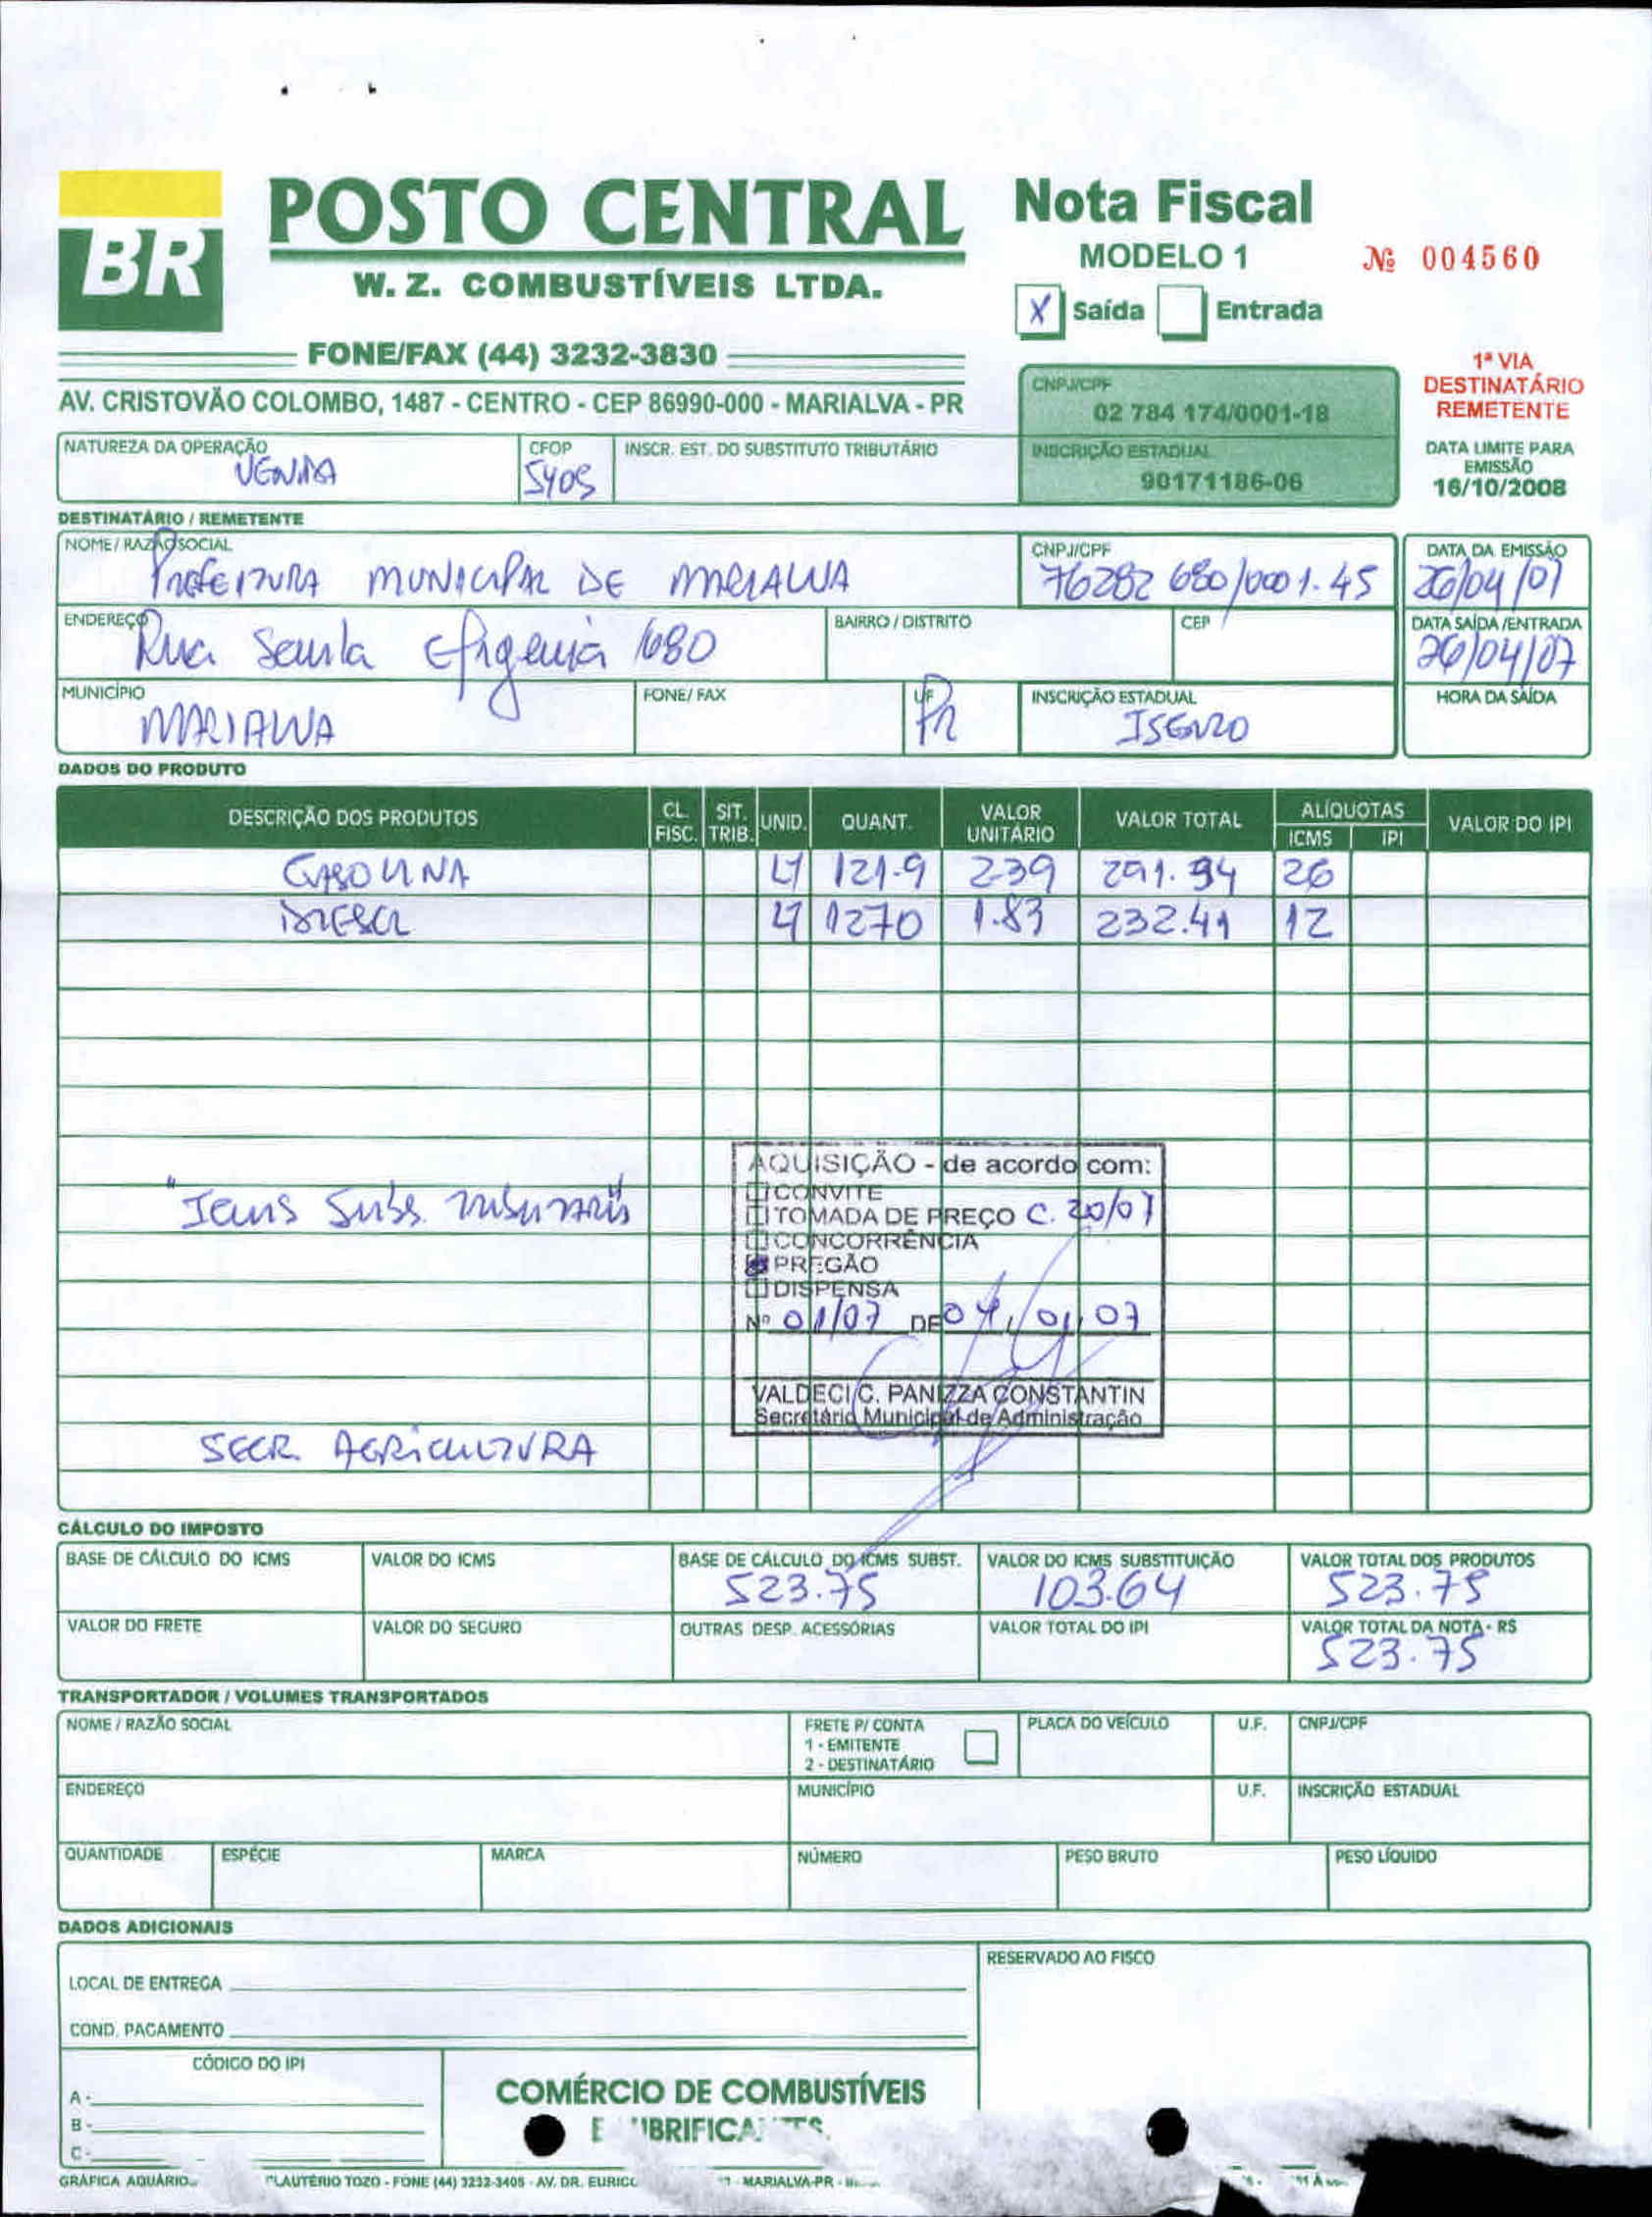 BR
POSTO CENTRAL
W. Z. COMBUSTÍVEIS LTDA.
FONE/FAX (44) 3232-3830
AV. CRISTOVÃO COLOMBO, 1487 - CENTRO - CEP 86990-000 - MARIALVA - PR
Nota Fiscal
MODELO 1
Nº 004560
X Saída Entrada
1ª VIA
DESTINATÁRIO
REMETENTE
CNPJ/CPF
02 784 174/0001-18
INSCRIÇÃO ESTADUAL
90171186-06
DATA LIMITE PARA
EMISSÃO
16/10/2008
NATUREZA DA OPERAÇÃO CFOP INSCR. EST. DO SUBSTITUTO TRIBUTÁRIO
VENDA 5405
DESTINATÁRIO / REMETENTE
NOME / RAZÃO SOCIAL CNPJ/CPF DATA DA EMISSÃO
PREFEITURA MUNICIPAL DE MARIALVA 76282 680/0001.45 26/04/07
ENDEREÇO BAIRRO / DISTRITO CEP DATA SAÍDA/ENTRADA
Rua Santa Efigenia 1680 26/04/07
MUNICÍPIO FONE/ FAX UF INSCRIÇÃO ESTADUAL HORA DA SAÍDA
MARIALVA PR ISENTO
DADOS DO PRODUTO
DESCRIÇÃO DOS PRODUTOS CL. FISC. SIT. TRIB. UNID. QUANT. VALOR UNITÁRIO VALOR TOTAL ALÍQUOTAS ICMS IPI VALOR DO IPI
GASOLINA LT 121.9 239 291.34 26
DIESEL LT 1270 1.83 232.41 12
AQUISIÇÃO - de acordo com:
CONVITE
TOMADA DE PREÇO C. 20/07
CONCORRÊNCIA
PREGÃO
DISPENSA
Nº 01/07 DE 04/01/07
VALDECI C. PANIZZA CONSTANTIN
Secretário Municipal de Administração
"Icms Subs Tributaria"
SECR. AGRICULTURA
CÁLCULO DO IMPOSTO
BASE DE CÁLCULO DO ICMS VALOR DO ICMS BASE DE CÁLCULO DO ICMS SUBST. VALOR DO ICMS SUBSTITUIÇÃO VALOR TOTAL DOS PRODUTOS
523.75 103.64 523.75
VALOR DO FRETE VALOR DO SEGURO OUTRAS DESP. ACESSÓRIAS VALOR TOTAL DO IPI VALOR TOTAL DA NOTA - R$
523.75
TRANSPORTADOR / VOLUMES TRANSPORTADOS
NOME / RAZÃO SOCIAL FRETE P/ CONTA PLACA DO VEÍCULO U.F. CNPJ/CPF
1 - EMITENTE
2 - DESTINATÁRIO
ENDEREÇO MUNICÍPIO U.F. INSCRIÇÃO ESTADUAL
QUANTIDADE ESPÉCIE MARCA NÚMERO PESO BRUTO PESO LÍQUIDO
DADOS ADICIONAIS
LOCAL DE ENTREGA
COND. PAGAMENTO
RESERVADO AO FISCO
CÓDIGO DO IPI
A -
B -
C -
COMÉRCIO DE COMBUSTÍVEIS
GRÁFICA AQUÁRIO TOZO - FONE (44) 3232-3405 - AV. DR. MARIALVA-PR